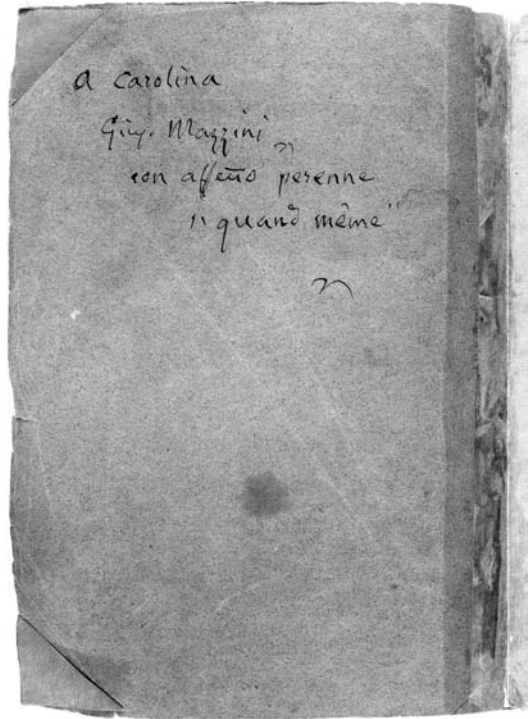 a Carolina
Giu. Mazzini
con affetto perenne
"quand même"